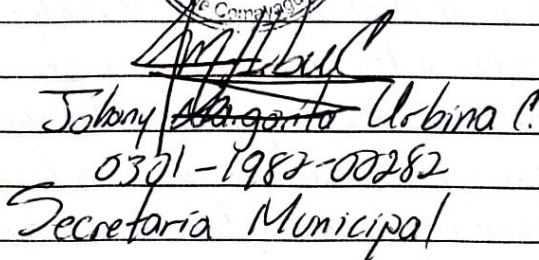 de Comayagu
Johany Urbina C.
0301-1982-00282
Secretaria Municipal